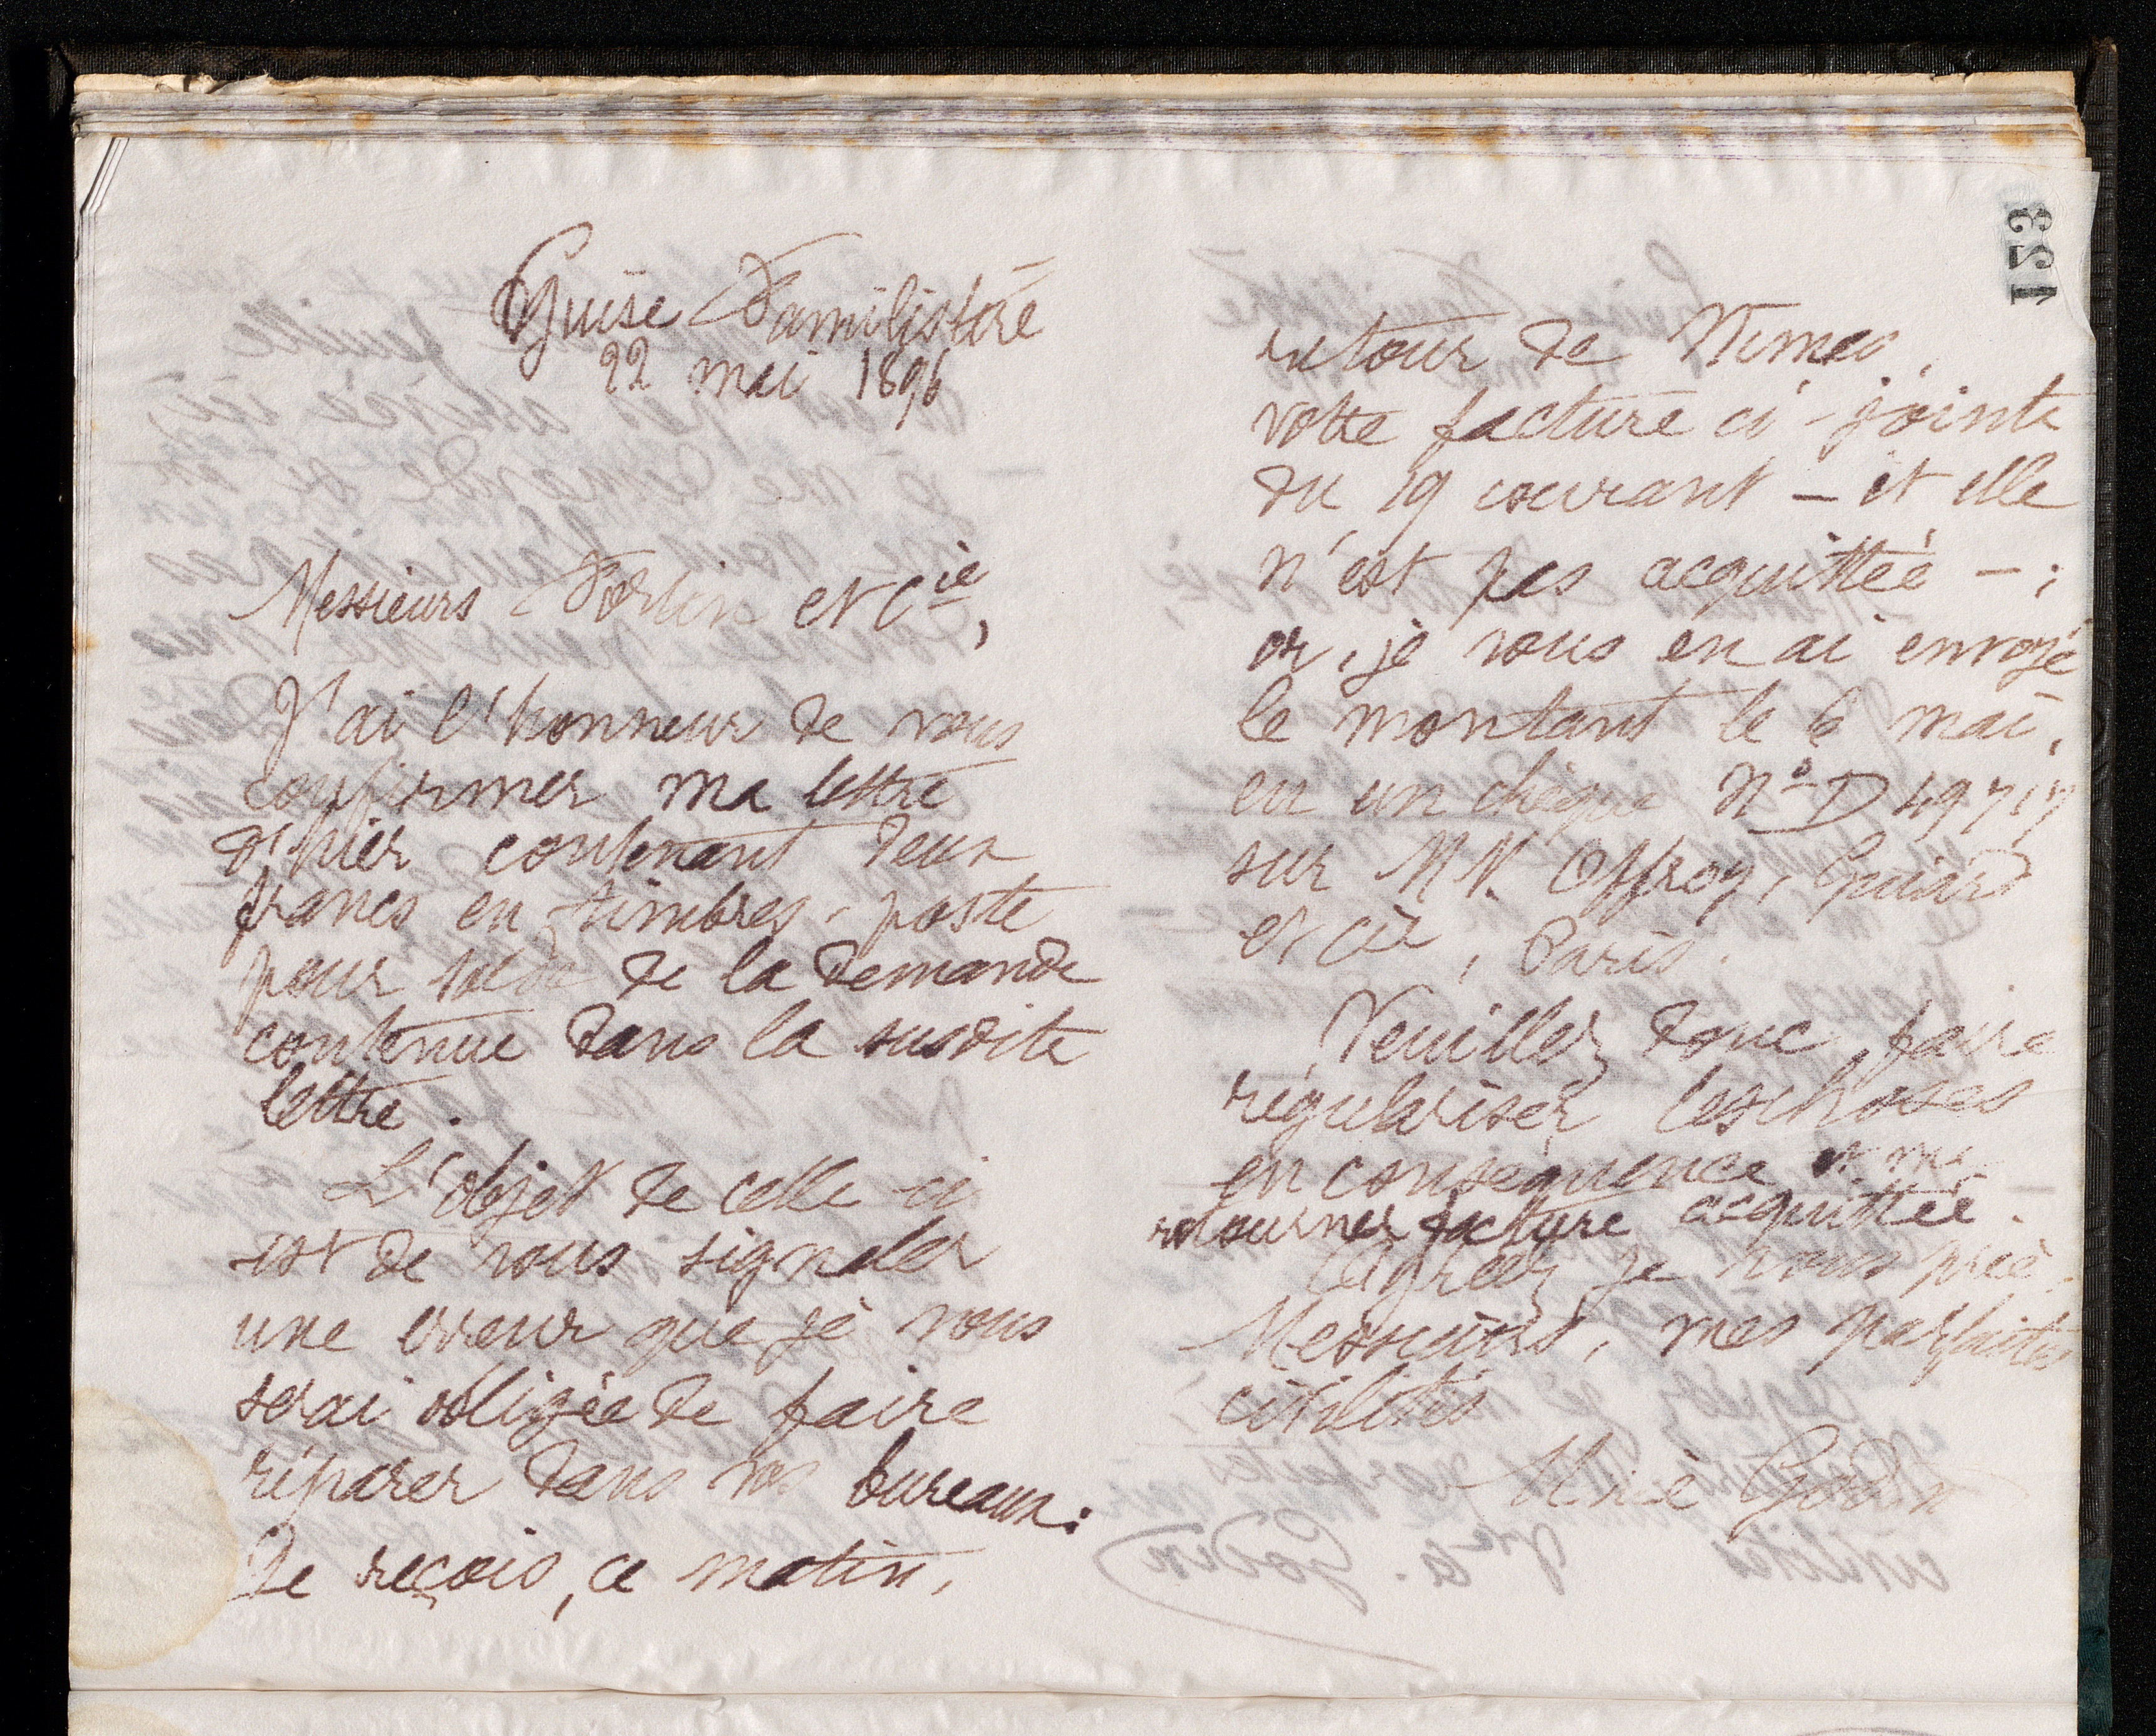 Guise Familistère
22 mai 1896
Messieurs Fortin et Cie,
J'ai l'honneur de vous
confirmer ma lettre
d'hier contenant deux
francs en timbres-poste
pour solde de la demande
contenue dans la susdite
lettre.
L'objet de celle-ci
est de vous signaler
une erreur que je vous
serai obligée de faire
réparer dans vos bureaux:
Je reçois, ce matin,
153
retour de Nîmes,
votre facture ci-jointe
du 19 courant – et elle
n'est pas acquittée –;
or, je vous en ai envoyé
le montant le 6 mai,
en un chèque No D 49717
sur MM. Offroy, Guiard
et Cie, Paris.
Veuillez donc faire
régulariser les choses
en conséquence et me
retourner facture acquittée.
Agréez je vous prie,
Messieurs, mes parfaites
civilités
Marie Godin